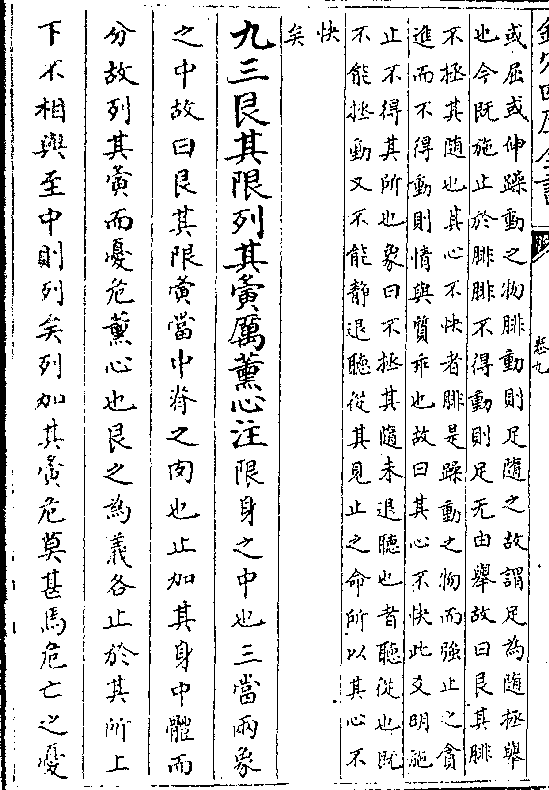 欽定四庫全書
卷九
或屈或伸躁動之物腓動則足隨之故謂足為隨拯舉
也今既施止於腓腓不得動則足无由舉故曰艮其腓
不拯其隨也其心不快者腓是躁動之物而強止之貪
進而不得動則情與質乖也故曰其心不快此爻明施
止不得其所也象曰不拯其隨未退聽也者聽從也既
不能拯動又不能靜退聽從其見止之命所以其心不
快矣
九三艮其限列其夤厲薰心注限身之中也三當兩象
之中故曰艮其限夤當中脊之肉也止加其身中體而
分故列其夤而憂危薰心也艮之為義各止於其所上
下不相與至中則列矣列加其夤危莫甚焉危亡之憂